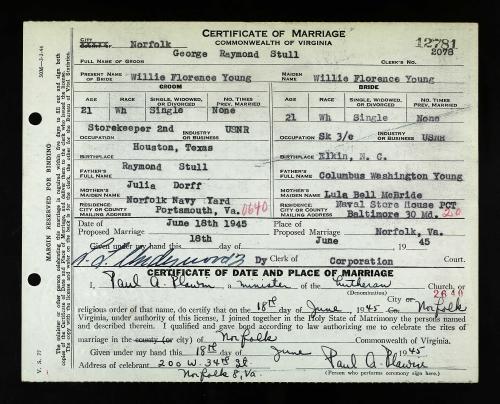 CERTIFICATE OF MARRIAGE
COMMONWEALTH OF VIRGINIA
CITY Norfolk
12781
2078
George Raymond Stull
FULL NAME OF GROOM
CLERK'S NO.
PRESENT NAME OF BRIDE Willie Florence Young
MAIDEN NAME Willie Florence Young
GROOM
BRIDE
AGE RACE SINGLE, WIDOWED, OR DIVORCED NO. TIMES PREV. MARRIED
AGE RACE SINGLE, WIDOWED, OR DIVORCED NO. TIMES PREV. MARRIED
21 Wh Single None
21 Wh Single None
OCCUPATION Storekeeper 2nd INDUSTRY OR BUSINESS USNR
OCCUPATION Sk 3/c INDUSTRY OR BUSINESS USNR
BIRTHPLACE Houston, Texas
BIRTHPLACE Elkin, N. C.
FATHER'S FULL NAME Raymond Stull
FATHER'S FULL NAME Columbus Washington Young
MOTHER'S MAIDEN NAME Julia Dorff
MOTHER'S MAIDEN NAME Lula Bell McBride
RESIDENCE: CITY OR COUNTY MAILING ADDRESS Norfolk Navy Yard Portsmouth, Va. 0640
RESIDENCE: CITY OR COUNTY MAILING ADDRESS Naval Store House PCT Baltimore 30 Md. 20
Date of Proposed Marriage June 18th 1945
Place of Proposed Marriage Norfolk, Va.
Given under my hand this 18th day of June 45
By Clerk of Corporation Court.
CERTIFICATE OF DATE AND PLACE OF MARRIAGE
I, Paul A. Plawin, a minister of the Lutheran Church, or
(Denomination)
2640
religious order of that name, do certify that on the 18th day of June, 1945 City or Co. Norfolk
Virginia, under authority of this License, I joined together in the Holy State of Matrimony the persons named
and described therein. I qualified and gave bond according to law authorizing me to celebrate the rites
of marriage in the county (or city) of Norfolk Commonwealth of Virginia.
Given under my hand this 18th day of June 1945
Address of celebrant 200 W. 34th St Paul A. Plawin
Norfolk 8, Va. (Person who performs ceremony sign here.)
MARGIN RESERVED FOR BINDING
V. S. 77